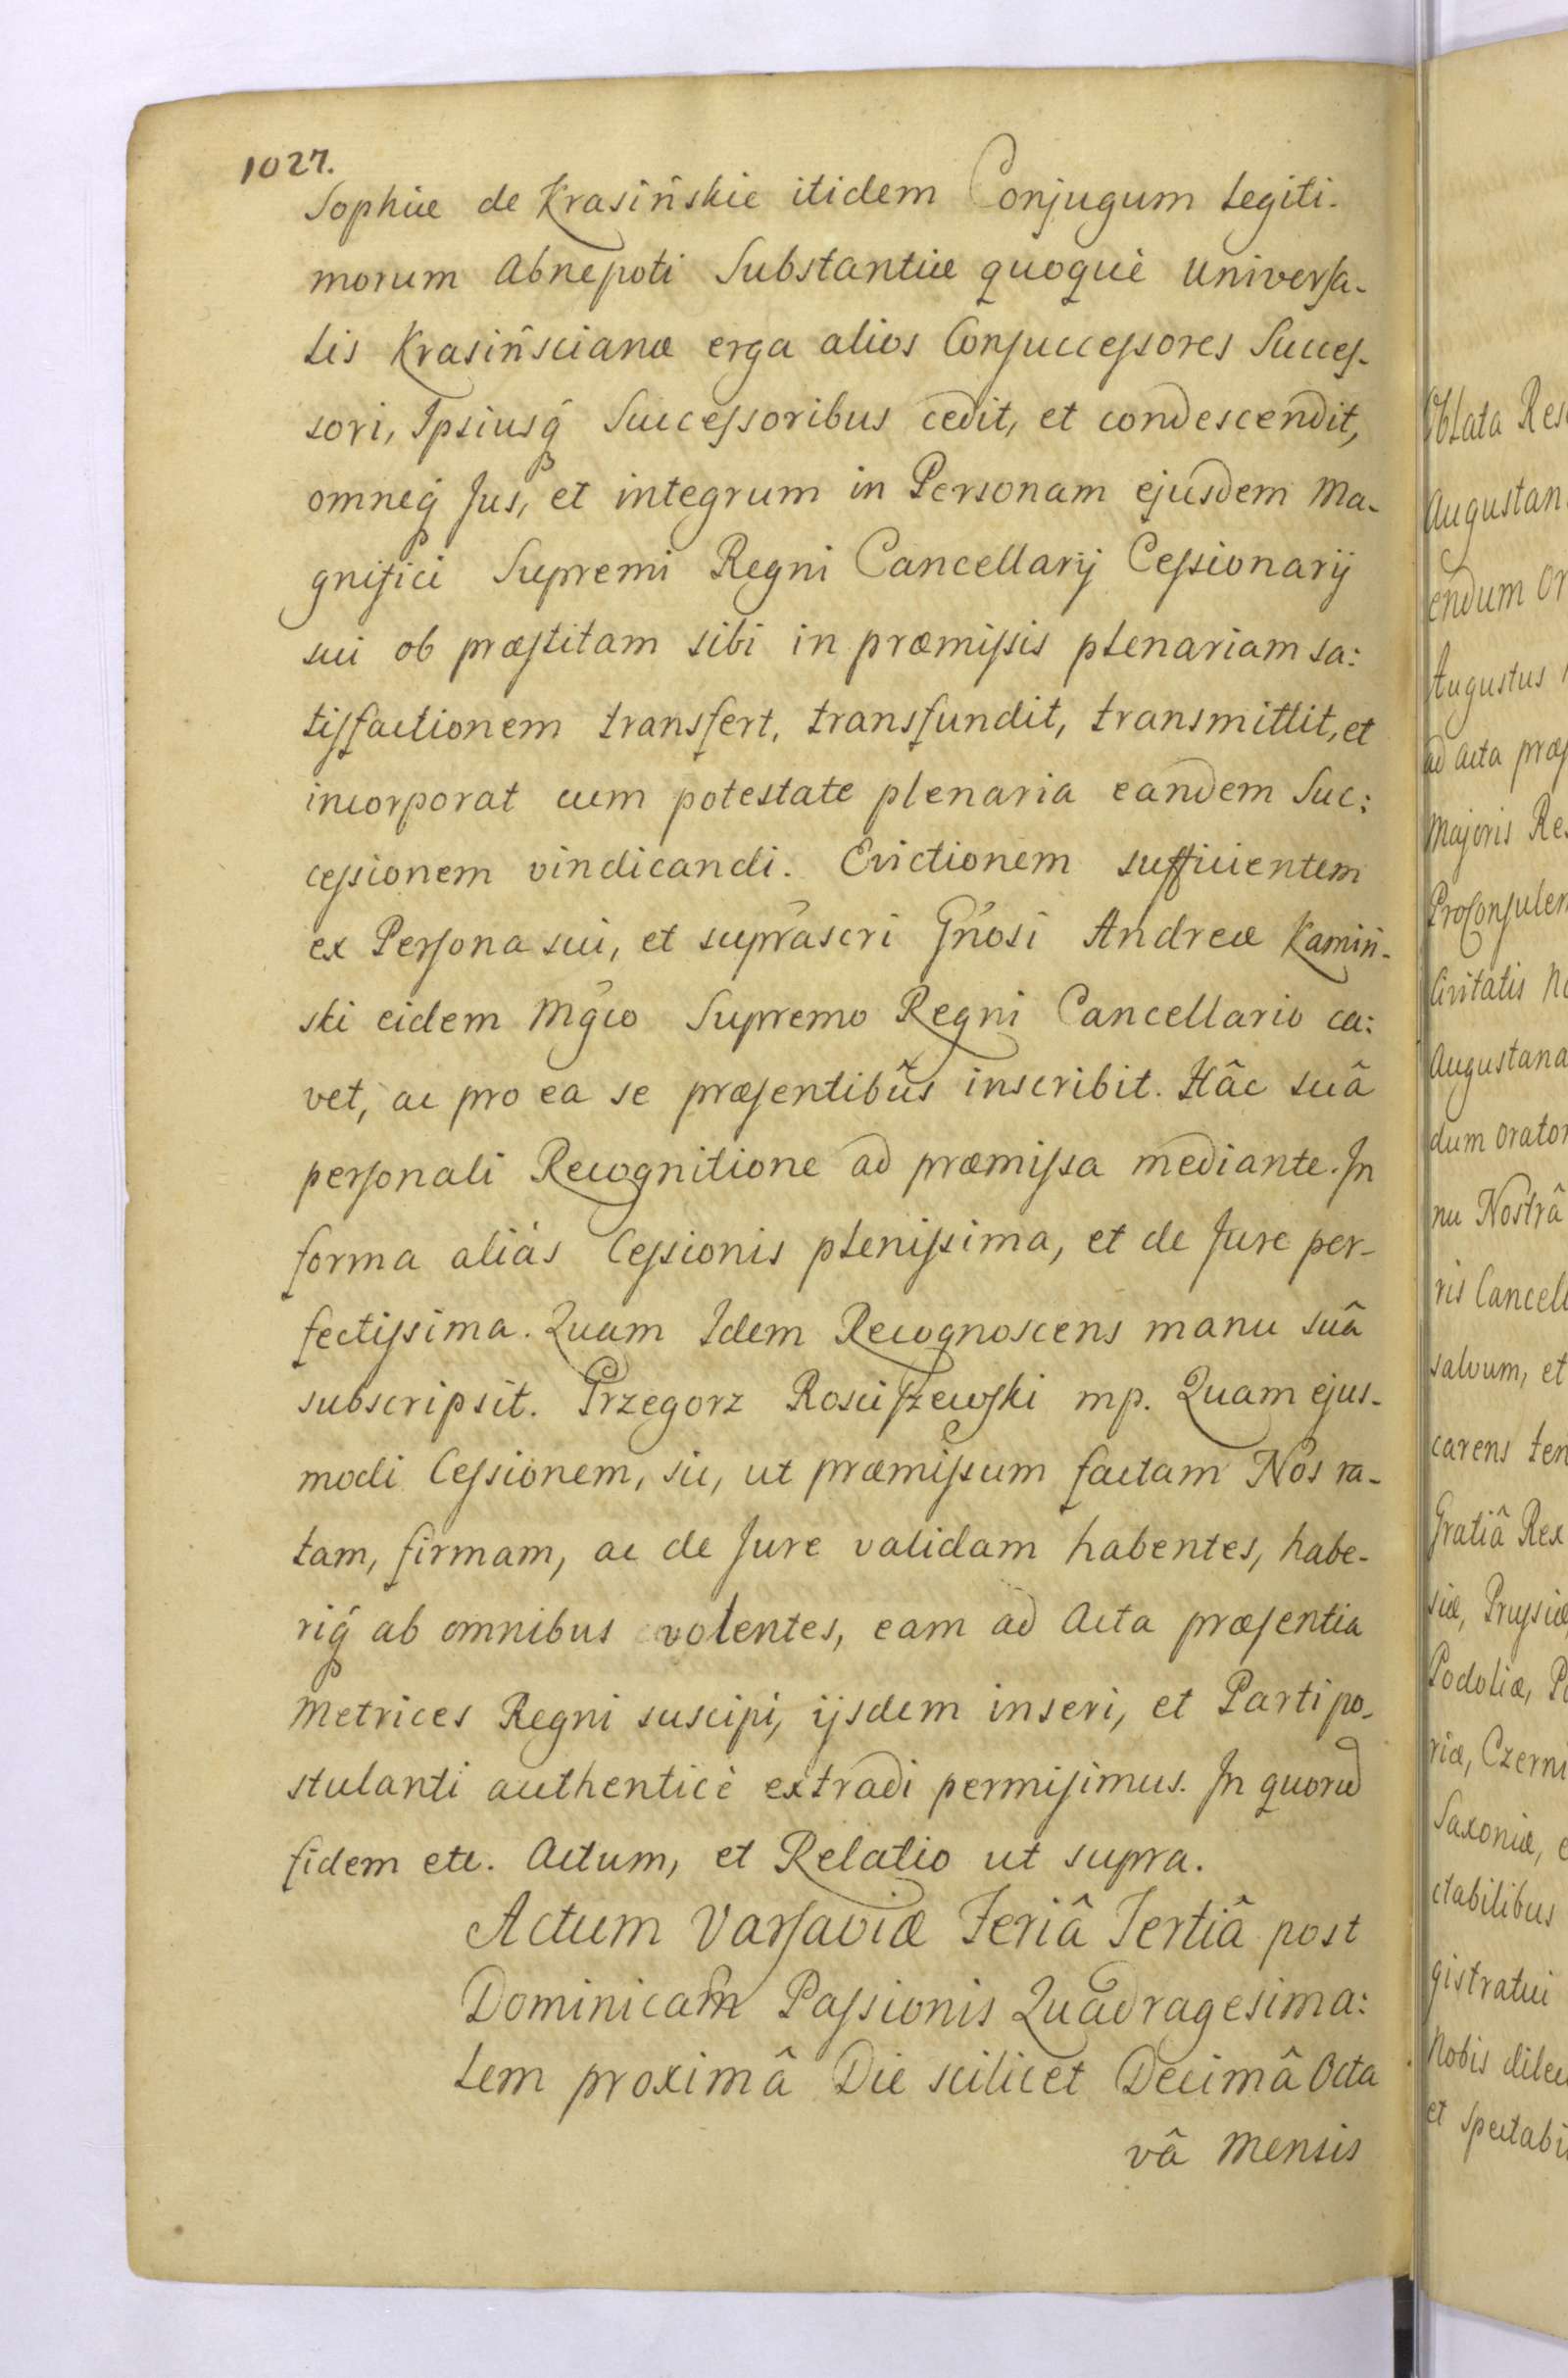 1027.
Sophiæ de Krasińskie itidem Conjugum Legiti-
morum Abnepoti Substantiæ quoque universa-
lis Krasińscianæ erga alios Consuccessores Succes-
sori, Ipsiusq́ Successoribus cedit, et condescendit,
omneq́ Jus, et integrum in Personam ejusdem Ma-
gnifici Supremi Regni Cancellarij Cessionarij
sui ob præstitam sibi in præmissis plenariam sa:
tisfactionem transfert, transfundit, transmittit, et
incorporat cum potestate plenaria eandem Suc:
cessionem vindicandi. Evictionem sufficientem
ex Persona sui, et supráscri Gńosi Andreæ Kamiń-
ski eidem Mgćo Supremo Regni Cancellario ca:
vet, ac pro ea se præsentibûs inscribit. Hâc suâ
personali Recognitione ad præmissa mediante. In
forma aliàs Cessionis plenissima, et de Jure per-
fectissima. Quam Idem Recognoscens manu suâ
subscripsit. Grzegorz Rosciszewski mp. Quam ejus-
modi Cessionem, sic, ut præmissum factam Nos ra-
tam, firmam, ac de Jure validam habentes, habe-
riq́ ab omnibus volentes, eam ad Acta præsentia
Metrices Regni suscipi, ijsdem inseri, et Parti po-
stulanti authenticè extradi permisimus. In quorū
fidem etc. Actum, et Relatio ut supra.
Actum Varsaviæ Feriâ Tertiâ post
Dominicam Passionis Quadragesima:
lem proximâ Die scilicet Decimâ Octa
vâ Mensis
Oblata Res
Augustan
endum Or
Augustus
ad acta præs
Majoris Re
ProConsulem
Civitatis
Augustana
dum orator
nu Nostrâ
ris Cancell
salvum, et
carens
Gratiâ Rex
siæ, Prussiæ
Podoliæ,
riæ, Czerni
Saxoniæ,
ctabilibus
gistratui
Nobis dilec
et spectabi